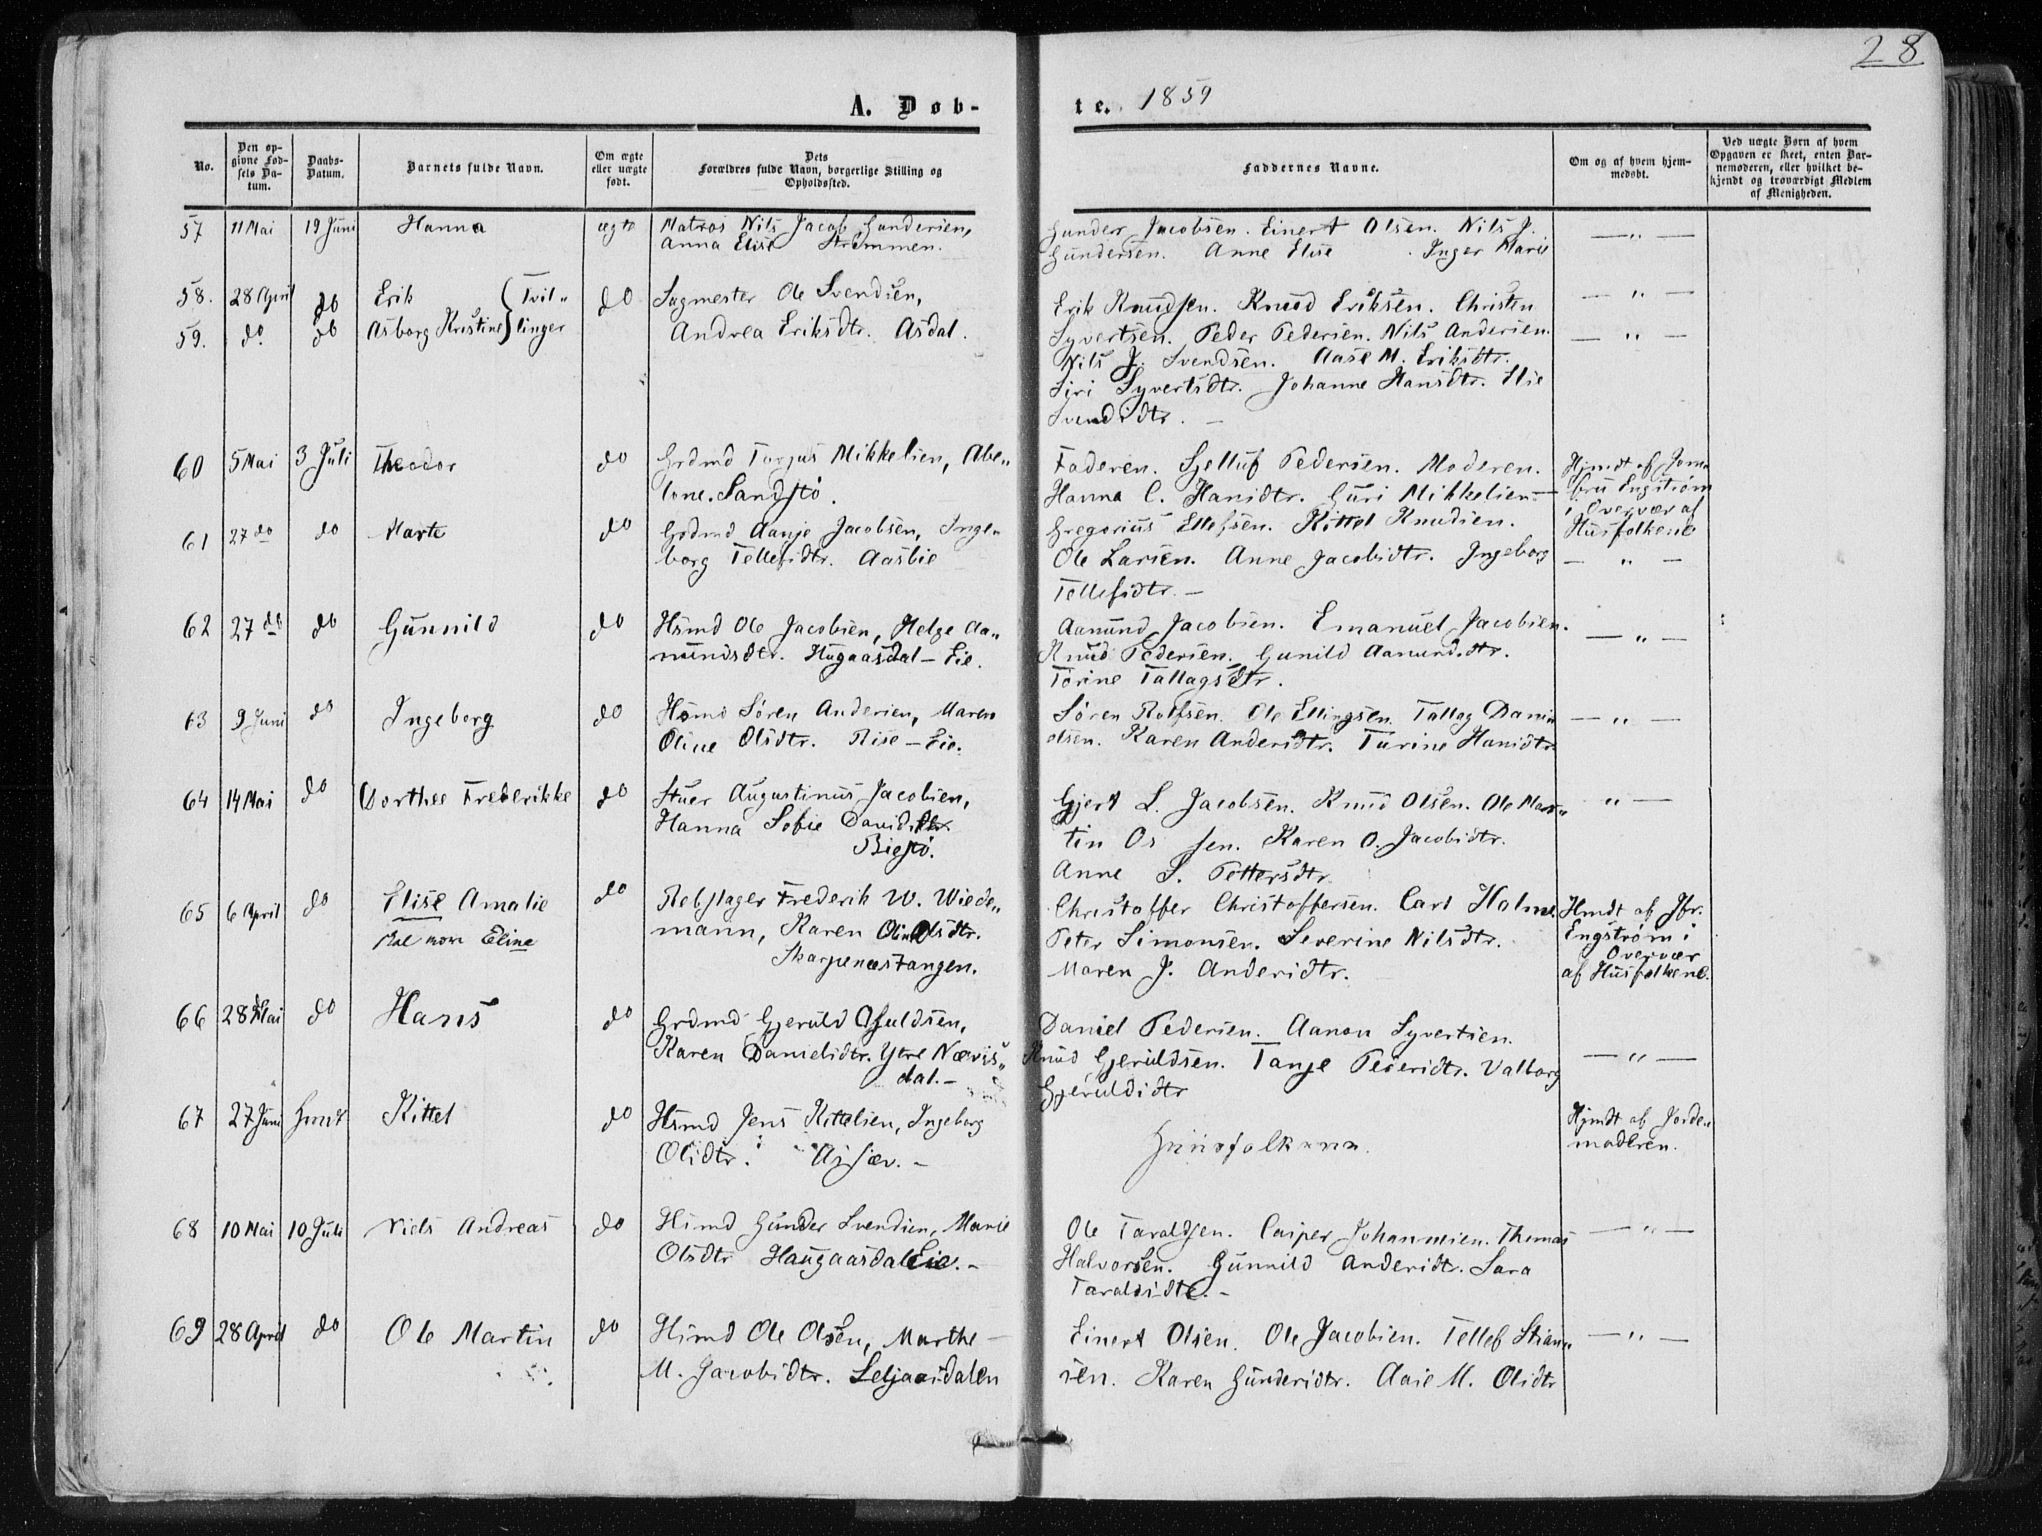 28
A. Døb-
te. 1859
No.
Den op-
givne Fød-
sels Da-
tum.
Daabs-
Datum.
Barnets fulde Navn.
Om ægte
eller uægte
født.
Dets
Forældres fulde Navn, borgerlige Stilling og
Opholdsted.
Faddernes Navne.
Om og af hvem hjem-
medøbt.
Ved uægte Børn af hvem
Opgaven er skeet, enten Bar-
nemoderen, eller hvilket be-
kjendt og troværdigt Medlem
af Menigheden.
57 11 Mai 19 Juni Hanna ægte Matros Nils Jacob Gundersen,
Anna Elise Strømmen.
Gunder Jacobsen. Einert Olsen. Nils J. — " —
Gundersen. Anne Elise . Inger Marie
58. 28 April do Erik (Tvil" do Sagmester Ole Svendsen,
59. do do Asborg Kristine} linger Andrea Eriksdtr. Asdal.
Erik Knudsen. Knud Eriksen. Christen — " —
Syvertsen. Peder Pedersen. Nils Andersen. — " —
Nils J. Svendsen. Aase M. Eriksdtr.
Siri Syvertsdtr. Johanne Hansdtr. Else
Svendsdtr. —
60 5 Mai 3 Juli Theodor do Grdmd Torjus Mikkelsen, Abe"
lone. Sandstø.
Faderen. Sjelluf Pedersen. Moderen. Hjmdt af Jom
Hanna C. Hansdtr. Guri Mikkelsen — fru Engstrøm
i Overvær af
Husfolkene
61 27 do do Marte do Grdmd Aanje Jacobsen, Inge"
borg Tellefsdtr. Aasbie
Gregorius Ellefsen. Kittel Knudsen.
Ole Larsen. Anne Jacobsdtr. Ingeborg — " —
Tellefsdtr. —
62 27 do do Gunnild do Hsmd Ole Jacobsen, Helge Aa"
nundsdtr. Hugaasdal — Eie.
Aanund Jacobsen. Emanuel Jacobsen. — " —
Knud Pedersen. Gunild Aanundsdtr.
Torine Tallagsdtr.
63 9 Juni do Ingeborg do Hsmd Søren Andersen, Maren
Oline Olsdtr. Rise — Eie.
Søren Rolfsen. Ole Ellingsen. Tallag Dani" — " —
elsen. Karen Andersdtr. Turine Hansdtr
64 14 Mai do Dorthee Frederikke do Stuer Augustinus Jacobsen,
Hanna Sofie Davidsdtr
Biestø.
Gjert L. Jacobsen. Knud Olsen. Ole Mar" " —
tin Os sen. Karen O. Jacobsdtr.
Anne S. Pettersdtr.
65 6 April do Elise Amalie do Rebslager Frederik W. Wiede"
Skal være Eline mann, Karen Oline Olsdtr.
Skarpenæstangen.
Christoffer Christoffersen. Carl Holme. Hmdt af Jfr.
Peter Simonsen. Severine Nilsdtr. Engstrøm i
Maren J. Andersdtr. Overvær
af Husfolkene.
66 28 Mai do Hans do Grdmd Gjeruld Osuldsen,
Karen Danielsdtr. Ytre Nævis"
dal. —
Daniel Pedersen. Aanon Syvertsen.
Knud Gjeruldsen. Tanje Pedersdtr. Valborg — " —
Gjeruldsdtr
67 27 Juni Hmdt Kittel do Hsmd Jens Kittelsen, Ingeborg
Olsdtr. Assæv. —
Huusfolkene. Hjmdt af Jorde"
moderen.
68 10 Mai 10 Juli Niels Andreas do Hsmd Gunder Svendsen, Marie
Olsdtr Haugaasdal Eie. —
Ole Taraldsen. Casper Johannesen. Thomas — " —
Halvorsen. Gunnild Andersdtr. Sara
Taraldsdtr. —
69 28 April do Ole Martin do Hsmd Ole Olsen, Marthe
M. Jacobsdtr. Seljaasdalen
Einert Olsen. Ole Jacobsen. Tellef Stian" — " —
sen. Karen Gundersdtr. Aase M. Olsdtr